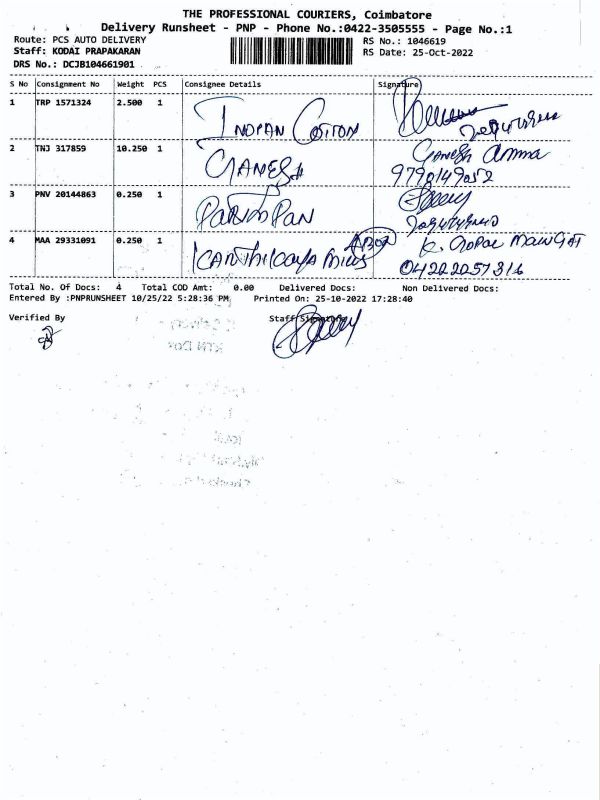 THE PROFESSIONAL COURIERS, Coimbatore
Delivery Runsheet - PNP - Phone No.:0422-3505555 - Page No.:1
Route: PCS AUTO DELIVERY
RS No.: 1046619
Staff: KODAI PRAPAKARAN
RS Date: 25-Oct-2022
DRS No.: DCJB104661901
S No Consignment No Weight PCS Consignee Details Signature
1 TRP 1571324 2.500 1 INDIAN COTTON
2 TNJ 317859 10.250 1 GANESH GANESH Amma
9790149052
3 PNV 20144863 0.250 1
4 MAA 29331091 0.250 1 K. GOPAL
04222257316
Total No. Of Docs: 4 Total COD Amt: 0.00 Delivered Docs: Non Delivered Docs:
Entered By :PNPRUNSHEET 10/25/22 5:28:36 PM Printed On: 25-10-2022 17:28:40
Verified By Staff Signature